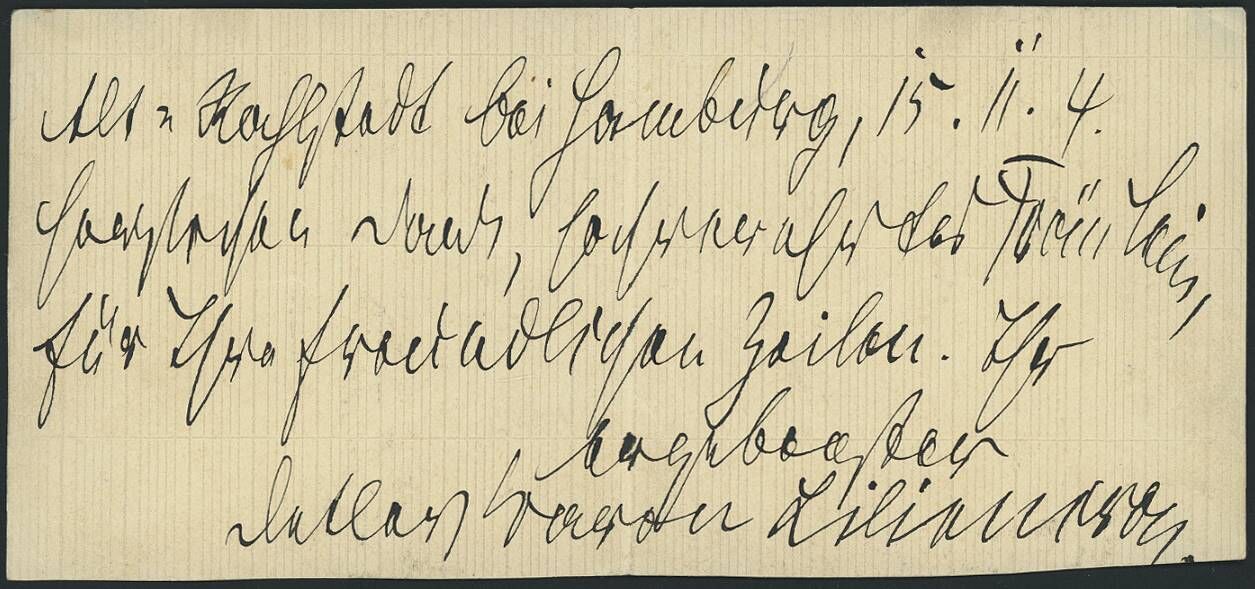 Alt-Rahlstedt bei Hamburg, 15. 11. 4.
Herzlichen Dank, hochverehrtes Fräulein,
für Ihre freundlichen Zeilen. Ihr
ergebenster
Detlev Baron Liliencron.